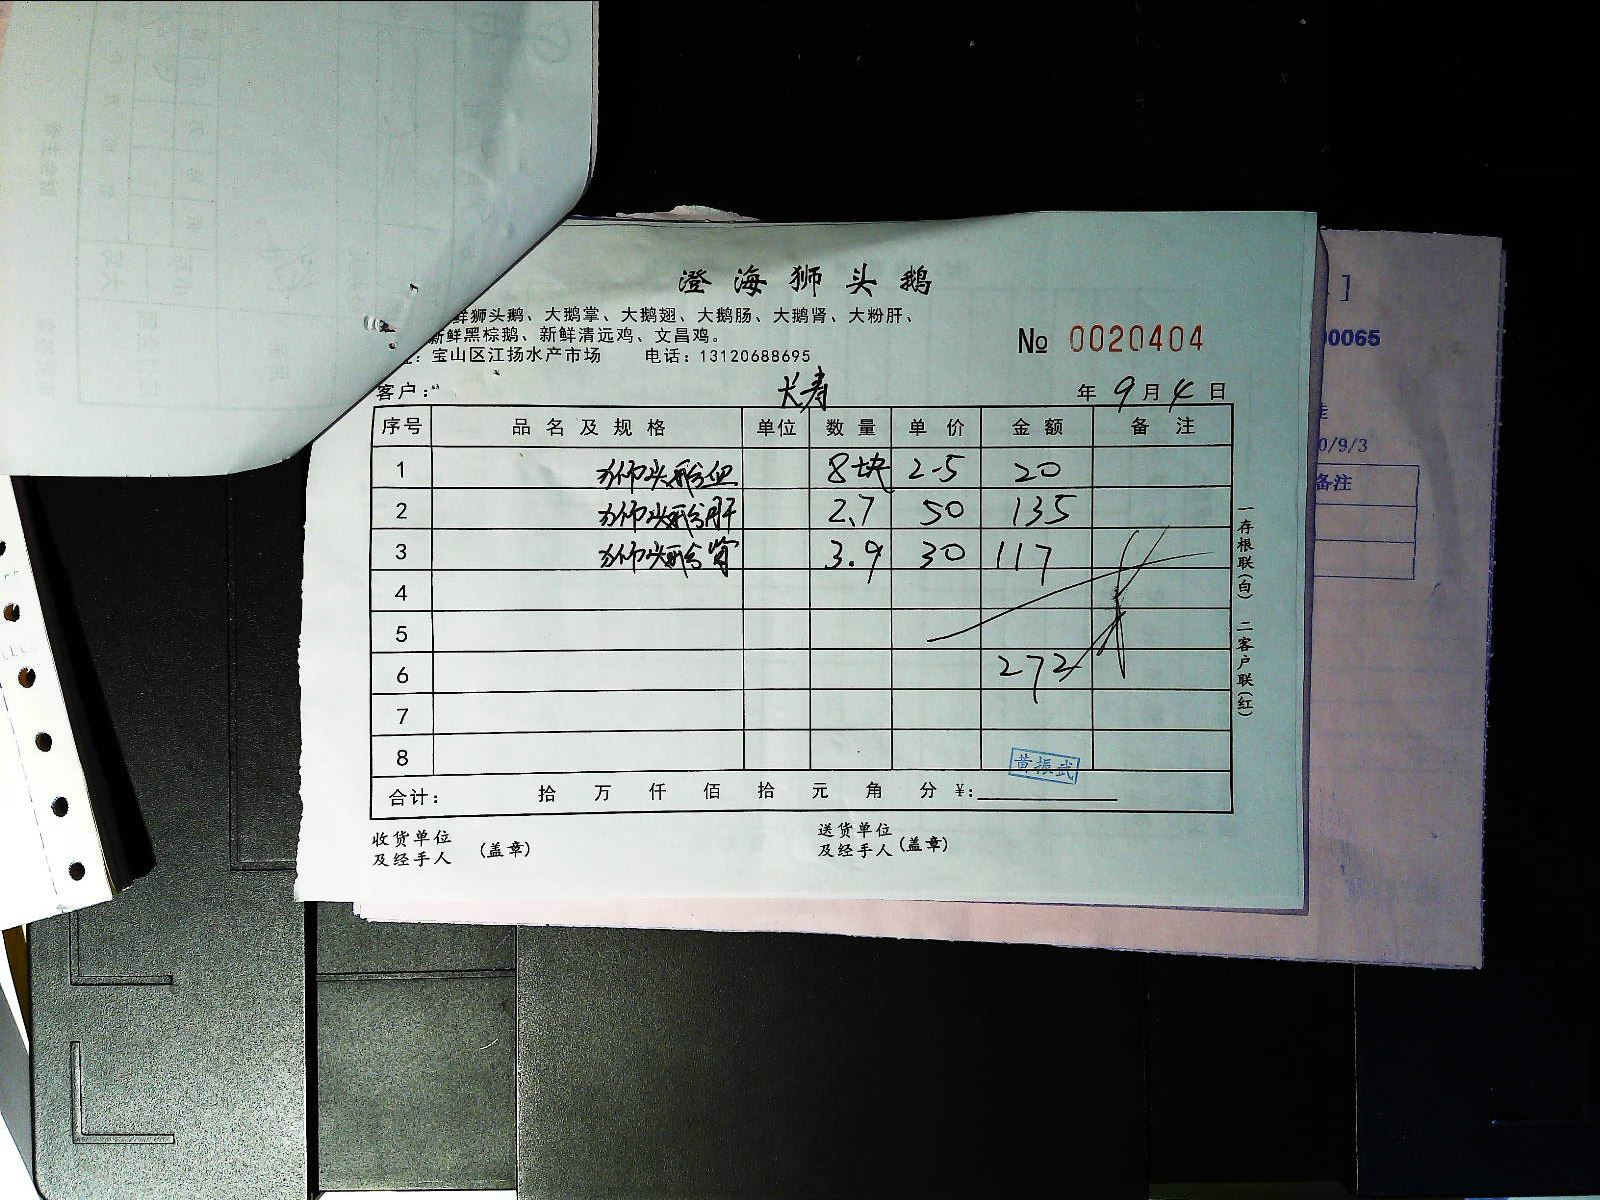 澄海狮头鹅
鲜狮头鹅、大鹅掌、大鹅翅、大鹅肠、大鹅肾、大粉肝、
新鲜黑棕鹅、新鲜清远鸡、文昌鸡。
：宝山区江扬水产市场 电话：13120688695
№ 0020404
客户： 长寿 年 9 月 4 日
序号 品名及规格 单位 数量 单价 金额 备注
1 狮头鹅血 8块 2.5 20
2 狮头鹅肝 2.7 50 135
3 狮头鹅肾 3.9 30 117
4
5
6 272
7
8
黄振武
合计： 拾 万 仟 佰 拾 元 角 分 ¥：
收货单位
及经手人 （盖章）
送货单位
及经手人（盖章）
一存根联（白） 二客户联（红）
]
00065
0/9/3
备注